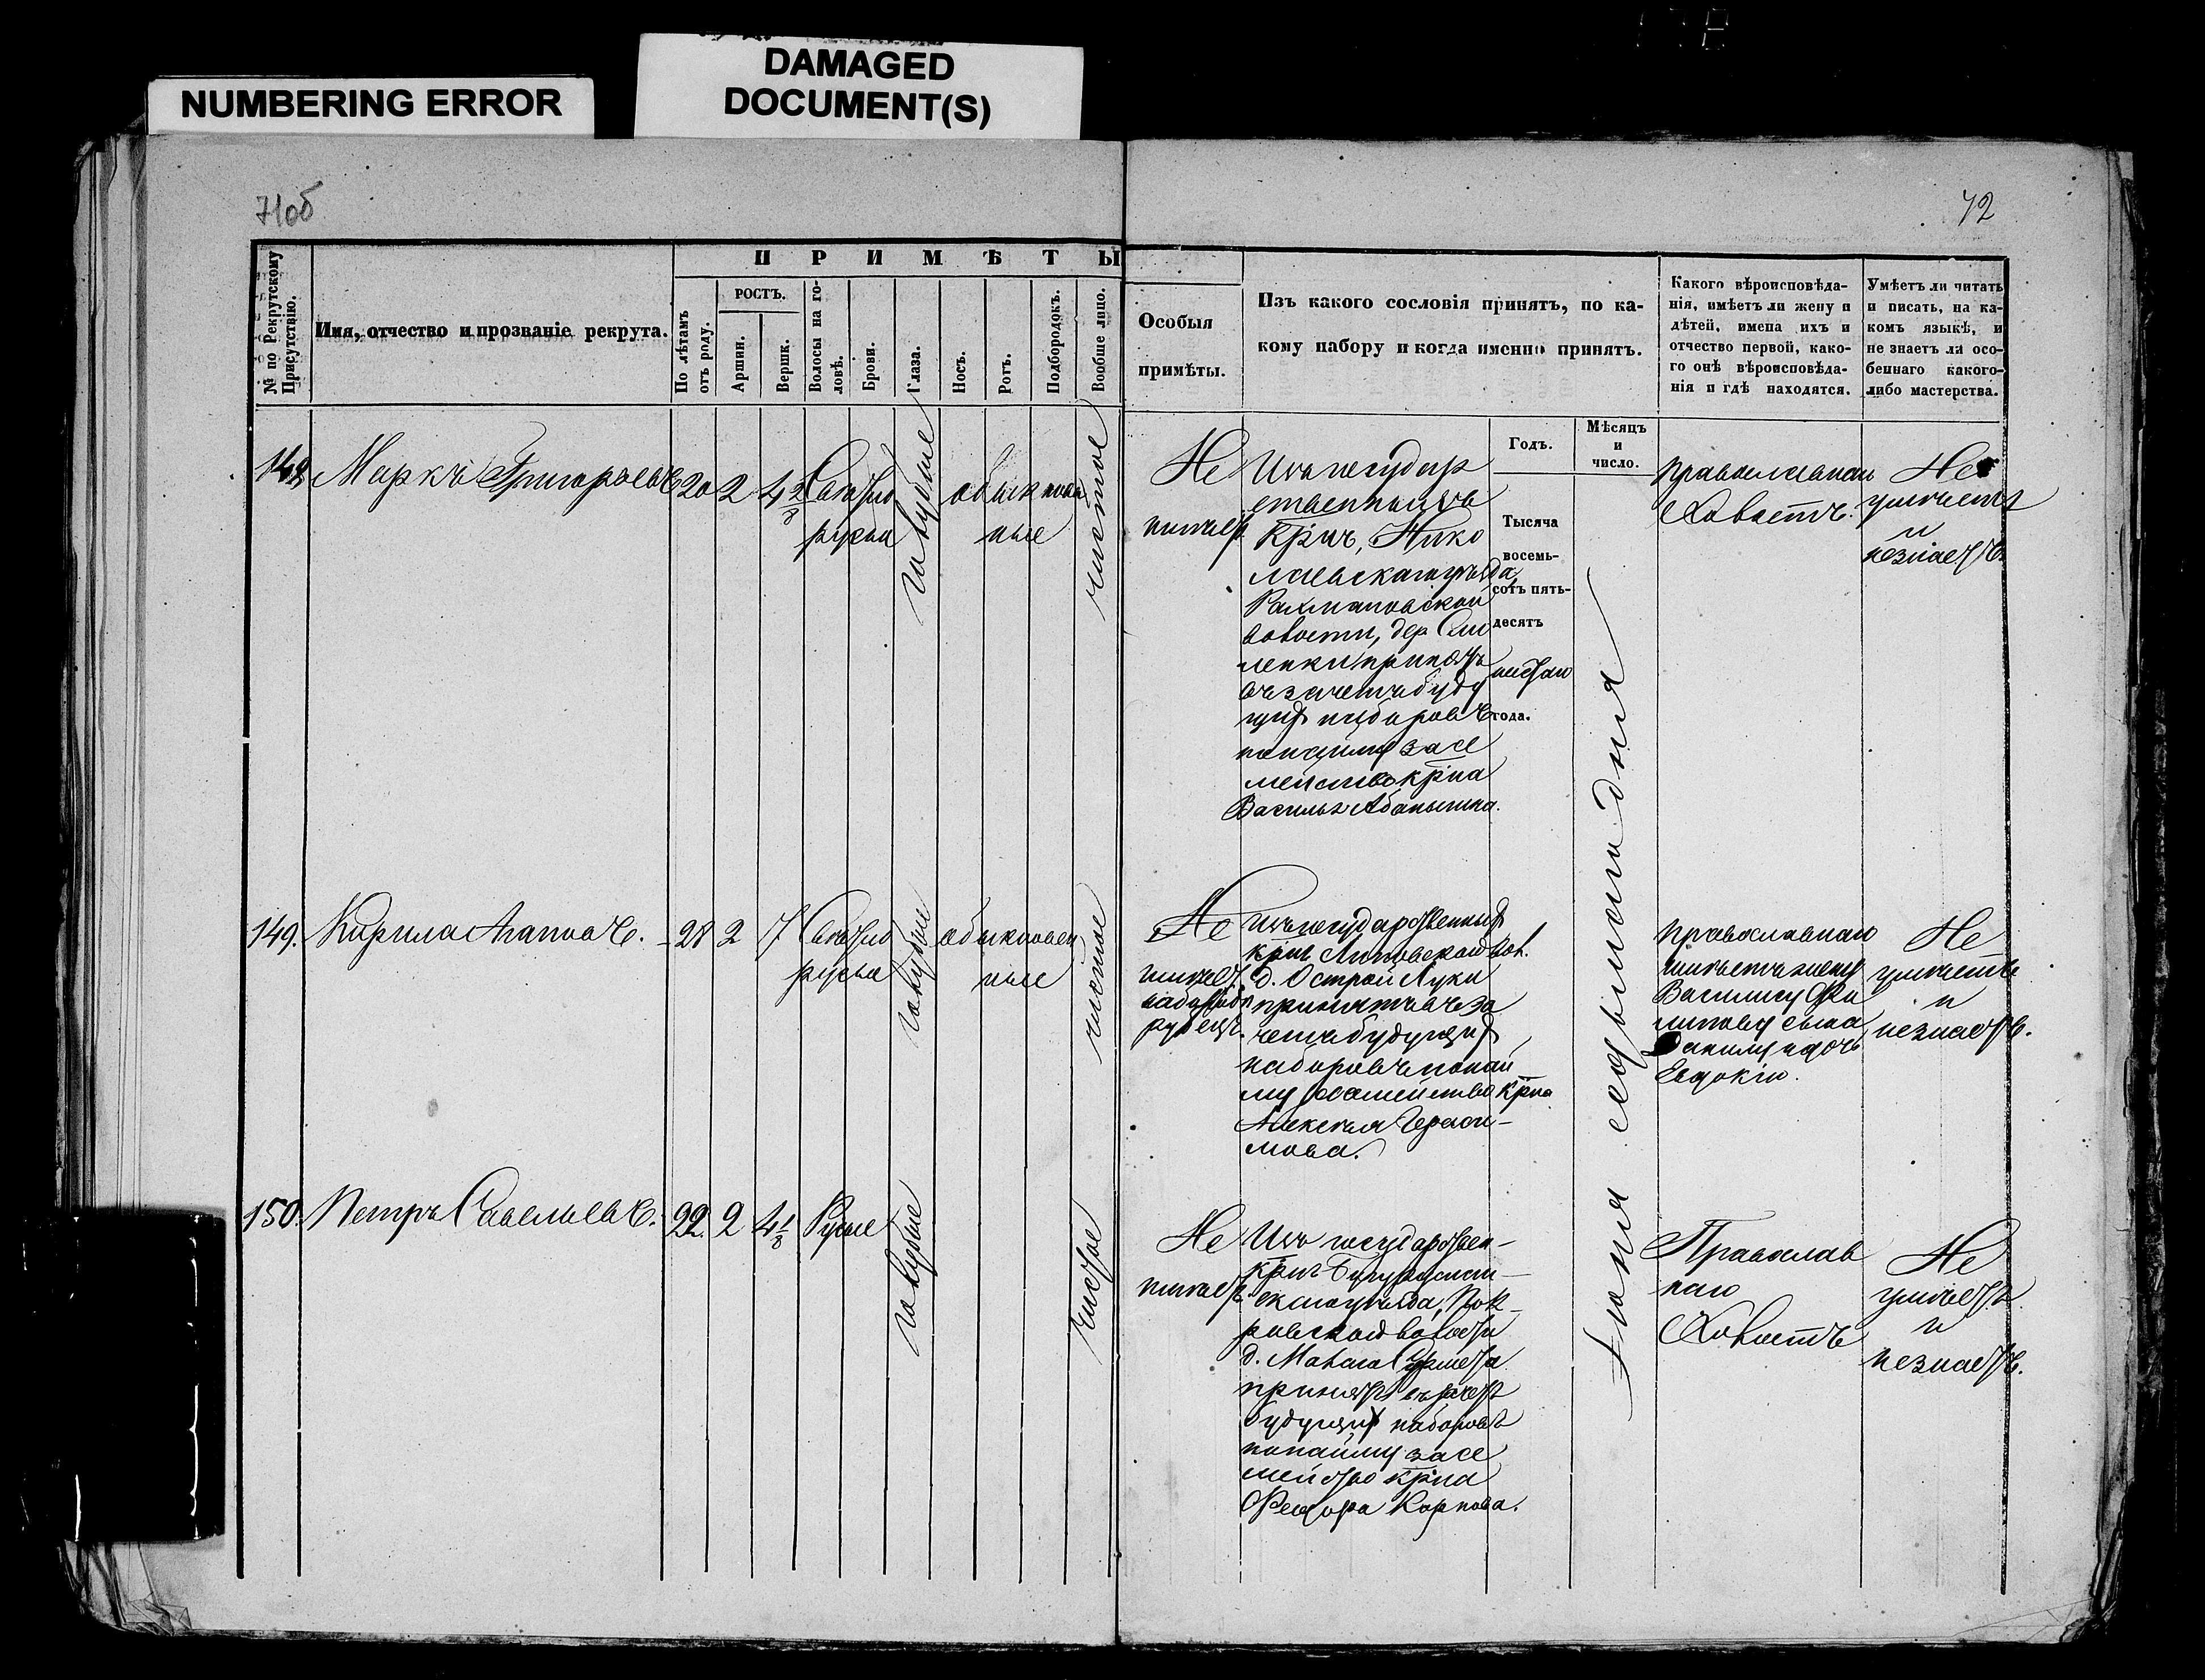 NUMBERING ERROR
DAMAGED
DOCUMENT(S)
71об
72
№ по Рекрутскому Присутствію.
Имя, отчество и прозваніе рекрута.
ПРИМѢТЫ
По лѣтамъ отъ роду.
РОСТЪ.
Аршин.
Вершк.
Волосы на головѣ.
Брови.
Глаза.
Носъ.
Ротъ.
Подбородокъ.
Вообще лицо.
Особыя
примѣты.
Изъ какого сословія принятъ, по ка-
кому набору и когда именно принятъ.
Годъ.
Мѣсяцъ
и
число.
Какого вѣроисповѣда-
нія, имѣетъ ли жену и
дѣтей, имена ихъ и
отчество первой, како-
го онѣ вѣроисповѣда-
нія и гдѣ находятся.
Умѣетъ ли читать
и писать, на ка-
комъ языкѣ, и
не знаетъ ли осо-
беннаго какого-
либо мастерства.
148 Маркъ Григорьевъ 20 2 4 2/8 Свѣтло
русыя
голубые
обыкновен
ные
чистое
Не
имѣетъ
Изъ государ
ственныхъ
крнъ, Нико
лаевскаго уѣзда,
Рахмановской
волости, дер
принятъ
въ зачетъ буду
щихъ наборовъ
по найму за се
мейство крна
Василья
Тысяча
восемь-
сотъ пять-
десятъ
шестаго
года.
Іюня седьмаго дня
Православнаго
Холостъ.
Не
умѣетъ
и
незнаетъ.
149. Кирила Агаповъ. 28 2 7 Свѣтло
русыя
голубые
обыкновен
ные
чистое
Не
имѣетъ
рубецъ.
Изъ государственныхъ
крнъ Липовской вол.
д. Острой Луки
принятъ въ за
четъ будущихъ
наборовъ по най
му за семейство крна
Алексѣя Гераси-
мова.
Православнаго
имѣетъ жену
Василису Фи
липову сына
и дочь
Евдокію.
Не
умѣетъ
и
незнаетъ.
150. Петръ Савельевъ. 22. 2 4 1/8 Русые
голубые
чистое
Не
имѣетъ
Изъ государствен-
крнъ Бугурусلан-
скаго уѣзда, Пок-
ровской волости
д. Малаго Сурмета
принятъ въ зачетъ
будущихъ наборовъ
по найму за се
мейство крна
Федора Карпова.
Православ
наго
Холостъ
Не
умѣетъ
и
незнаетъ.